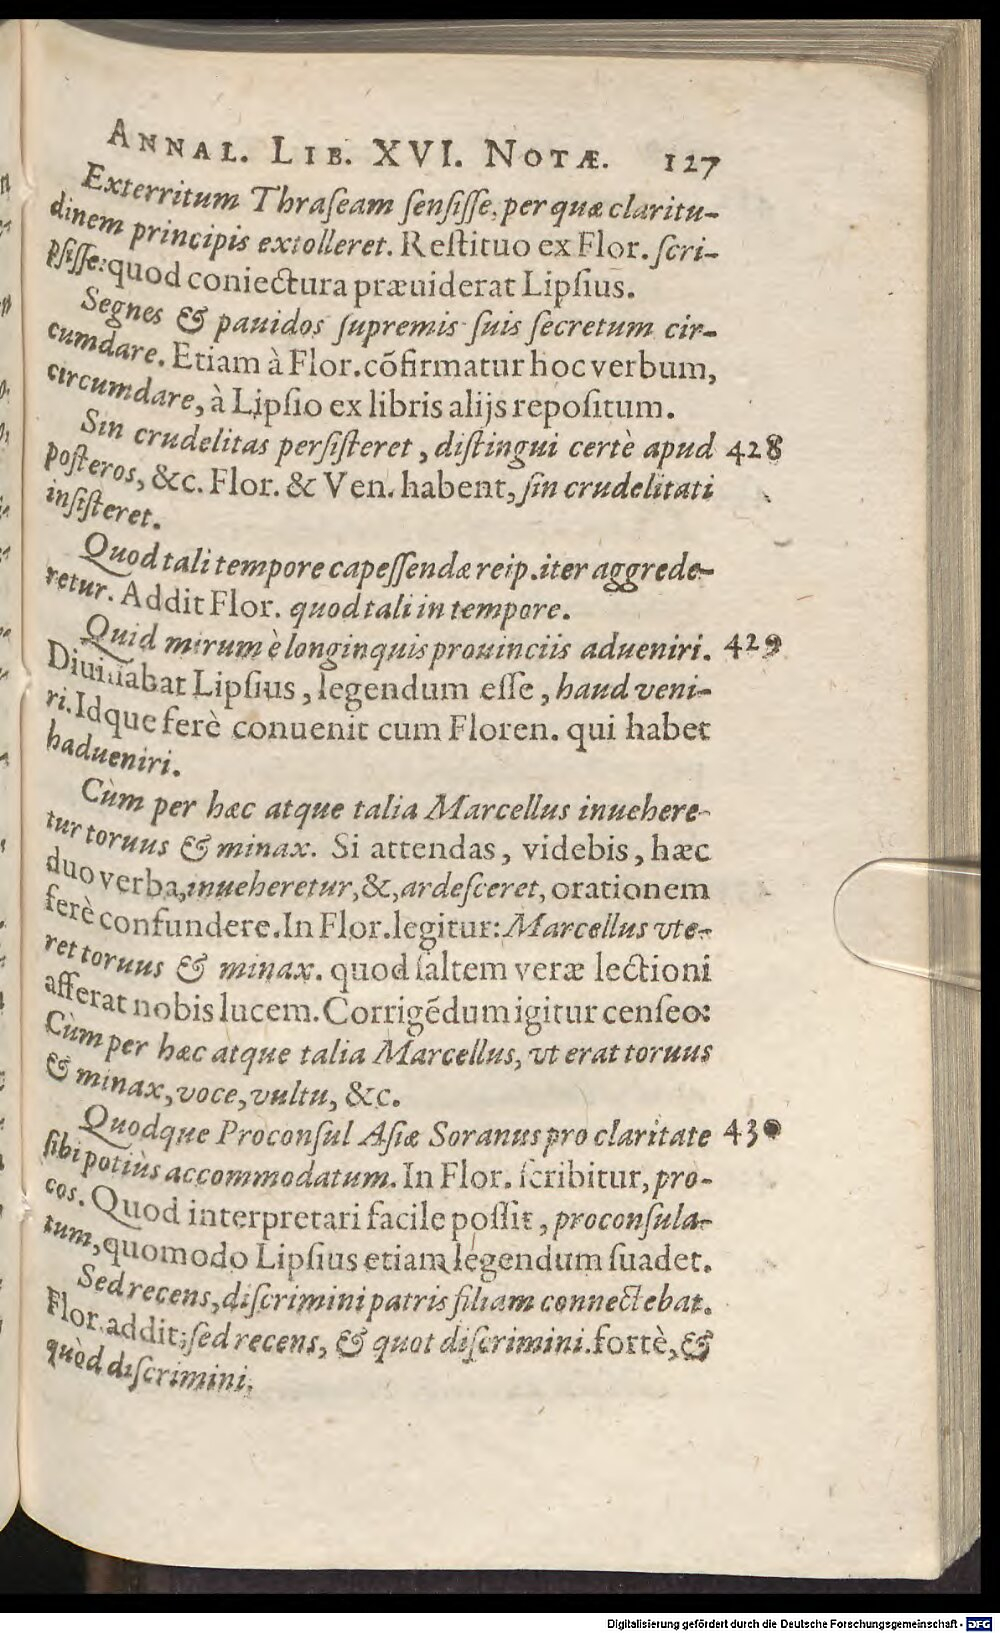 ANNAL. LIB. XVI. NOTÆ. 127
Exterritum Thraſeam ſenſiſſe, per quæ claritu-
dinem principis extolleret. Reſtituo ex Flor. ſcri-
pſiſſe: quod coniectura præuiderat Lipſius.
Segnes & pauidos ſupremis ſuis ſecretum cir-
cumdare. Etiam à Flor. cõfirmatur hoc verbum,
circumdare, à Lipſio ex libris alijs repoſitum.
Sin crudelitas perſiſteret, diſtingui certè apud 428
poſteros, &c. Flor. & Ven. habent, ſin crudelitati
inſiſteret.
Quod tali tempore capeſſendæ reip. iter aggrede-
retur. Addit Flor. quod tali in tempore.
Quid mirum è longinquis prouinciis adueniri. 429
Diuinabat Lipſius, legendum eſſe, haud veni-
ri. Idque ferè conuenit cum Floren. qui habet
hadueniri.
Cùm per hæc atque talia Marcellus inuehere-
tur toruus & minax. Si attendas, videbis, hæc
duo verba, inueheretur, &, ardeſceret, orationem
ferè confundere. In Flor. legitur: Marcellus vte-
ret toruus & minax. quod ſaltem veræ lectioni
afferat nobis lucem. Corrigẽdum igitur cenſeo:
Cùm per hæc atque talia Marcellus, vt erat toruus
& minax, voce, vultu, &c.
Quodque Proconſul Aſiæ Soranus pro claritate 430
ſibi potiùs accommodatum. In Flor. ſcribitur, pro-
cos. Quod interpretari facile poſſit, proconſula-
tum, quomodo Lipſius etiam legendum ſuadet.
Sed recens, diſcrimini patris filiam connectebat.
Flor. addit; ſed recens, & quot diſcrimini. fortè, &
quòd diſcrimini.
Digitalisierung gefördert durch die Deutsche Forschungsgemeinschaft - DFG